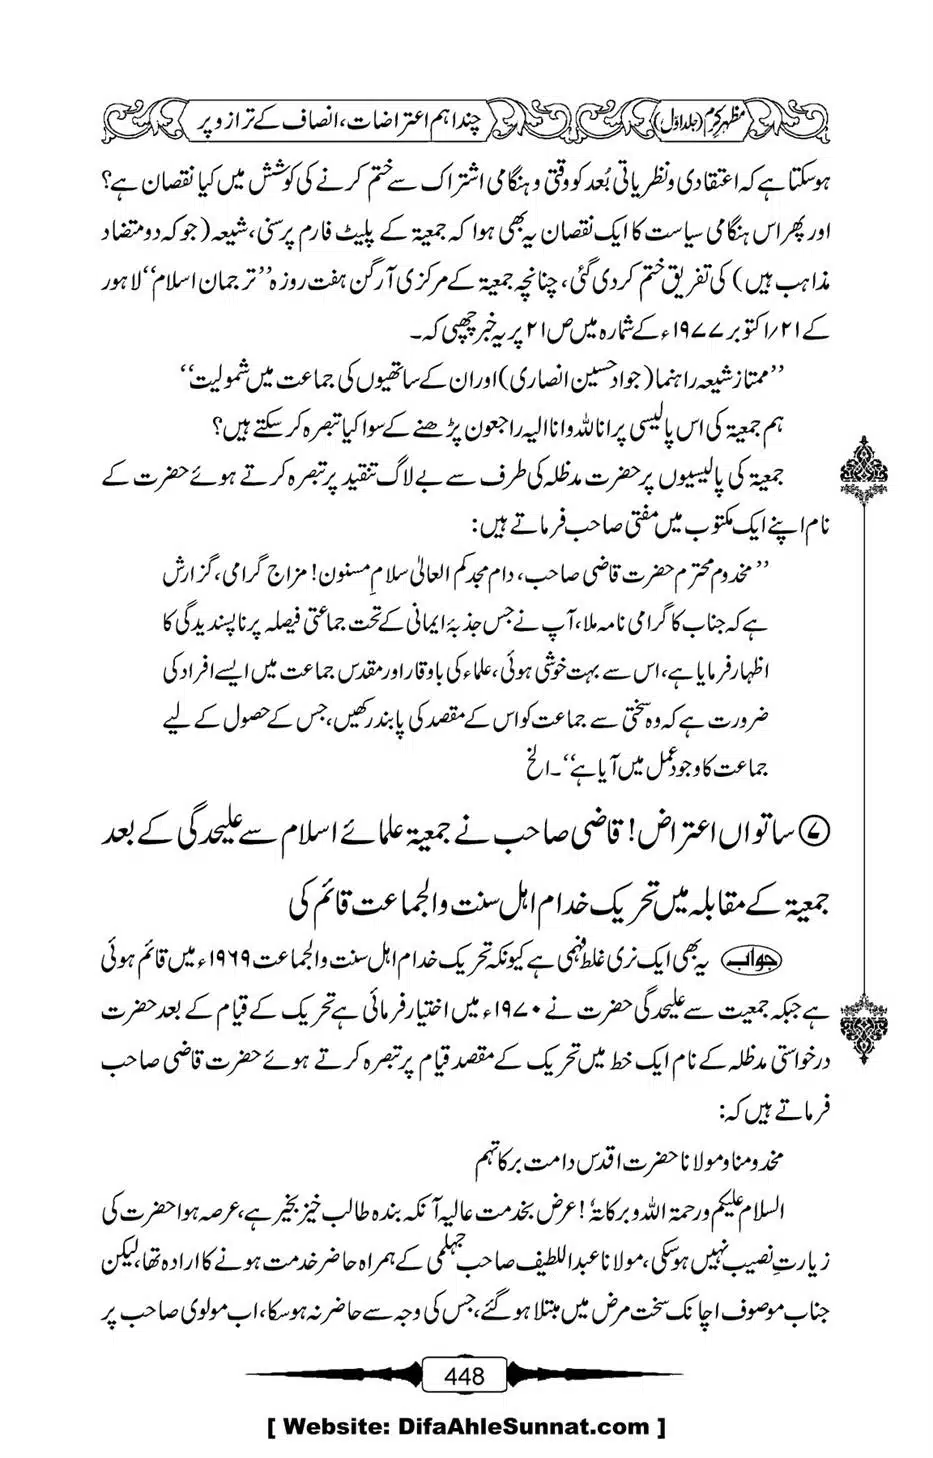 مظہرِ کرم (جلد اوّل) چند اہم اعتراضات، انصاف کے ترازو پر
ہوسکتا ہے کہ اعتقادی و نظریاتی بُعد کو وقتی و ہنگامی اشتراک سے ختم کرنے کی کوشش میں کیا نقصان ہے؟
اور پھر اس ہنگامی سیاست کا ایک نقصان یہ بھی ہوا کہ جمعیۃ کے پلیٹ فارم پر سنی، شیعہ (جو کہ دو متضاد
مذاہب ہیں) کی تفریق ختم کر دی گئی، چنانچہ جمعیۃ کے مرکزی آرگن ہفت روزہ ’’ترجمان اسلام‘‘ لاہور
کے ۲۱/اکتوبر ۱۹۷۷ء کے شمارہ میں ص ۲۱ پر یہ خبر چھپی کہ۔
’’ممتاز شیعہ راہنما (جواد حسین انصاری) اور ان کے ساتھیوں کی جماعت میں شمولیت‘‘
ہم جمعیۃ کی اس پالیسی پر انا للہ وانا الیہ راجعون پڑھنے کے سوا کیا تبصرہ کر سکتے ہیں؟
جمعیۃ کی پالیسیوں پر حضرت مدظلہ کی طرف سے بے لاگ تنقید پر تبصرہ کرتے ہوئے حضرت کے
نام اپنے ایک مکتوب میں مفتی صاحب فرماتے ہیں:
’’مخدوم محترم حضرت قاضی صاحب، دام مجدکم العالیٰ سلامِ مسنون! مزاج گرامی، گزارش
ہے کہ جناب کا گرامی نامہ ملا، آپ نے جس جذبۂ ایمانی کے تحت جماعتی فیصلہ پر ناپسندیدگی کا
اظہار فرمایا ہے، اس سے بہت خوشی ہوئی، علماء کی باوقار اور مقدس جماعت میں ایسے افراد کی
ضرورت ہے کہ وہ سختی سے جماعت کو اس کے مقصد کی پابند رکھیں، جس کے حصول کے لیے
جماعت کا وجود عمل میں آیا ہے‘‘۔ الخ
⑦ ساتواں اعتراض! قاضی صاحب نے جمعیۃ علمائے اسلام سے علیحدگی کے بعد
جمعیۃ کے مقابلہ میں تحریک خدام اہل سنت والجماعت قائم کی
جواب یہ بھی ایک نری غلط فہمی ہے کیونکہ تحریک خدام اہل سنت والجماعت ۱۹۶۹ء میں قائم ہوئی
ہے جبکہ جمعیت سے علیحدگی حضرت نے ۱۹۷۰ء میں اختیار فرمائی ہے تحریک کے قیام کے بعد حضرت
درخواستی مدظلہ کے نام ایک خط میں تحریک کے مقصد قیام پر تبصرہ کرتے ہوئے حضرت قاضی صاحب
فرماتے ہیں کہ:
مخدومنا و مولانا حضرت اقدس دامت برکاتہم
السلام علیکم ورحمۃ اللہ وبرکاتہٗ! عرض بخدمت عالیہ آنکہ بندہ طالب خیز بخیر ہے، عرصہ ہوا حضرت کی
زیارتِ نصیب نہیں ہو سکی، مولانا عبداللطیف صاحب جہلمی کے ہمراہ حاضر خدمت ہونے کا ارادہ تھا، لیکن
جناب موصوف اچانک سخت مرض میں مبتلا ہو گئے، جس کی وجہ سے حاضر نہ ہو سکا، اب مولوی صاحب پر
448
[ Website: DifaAhleSunnat.com ]